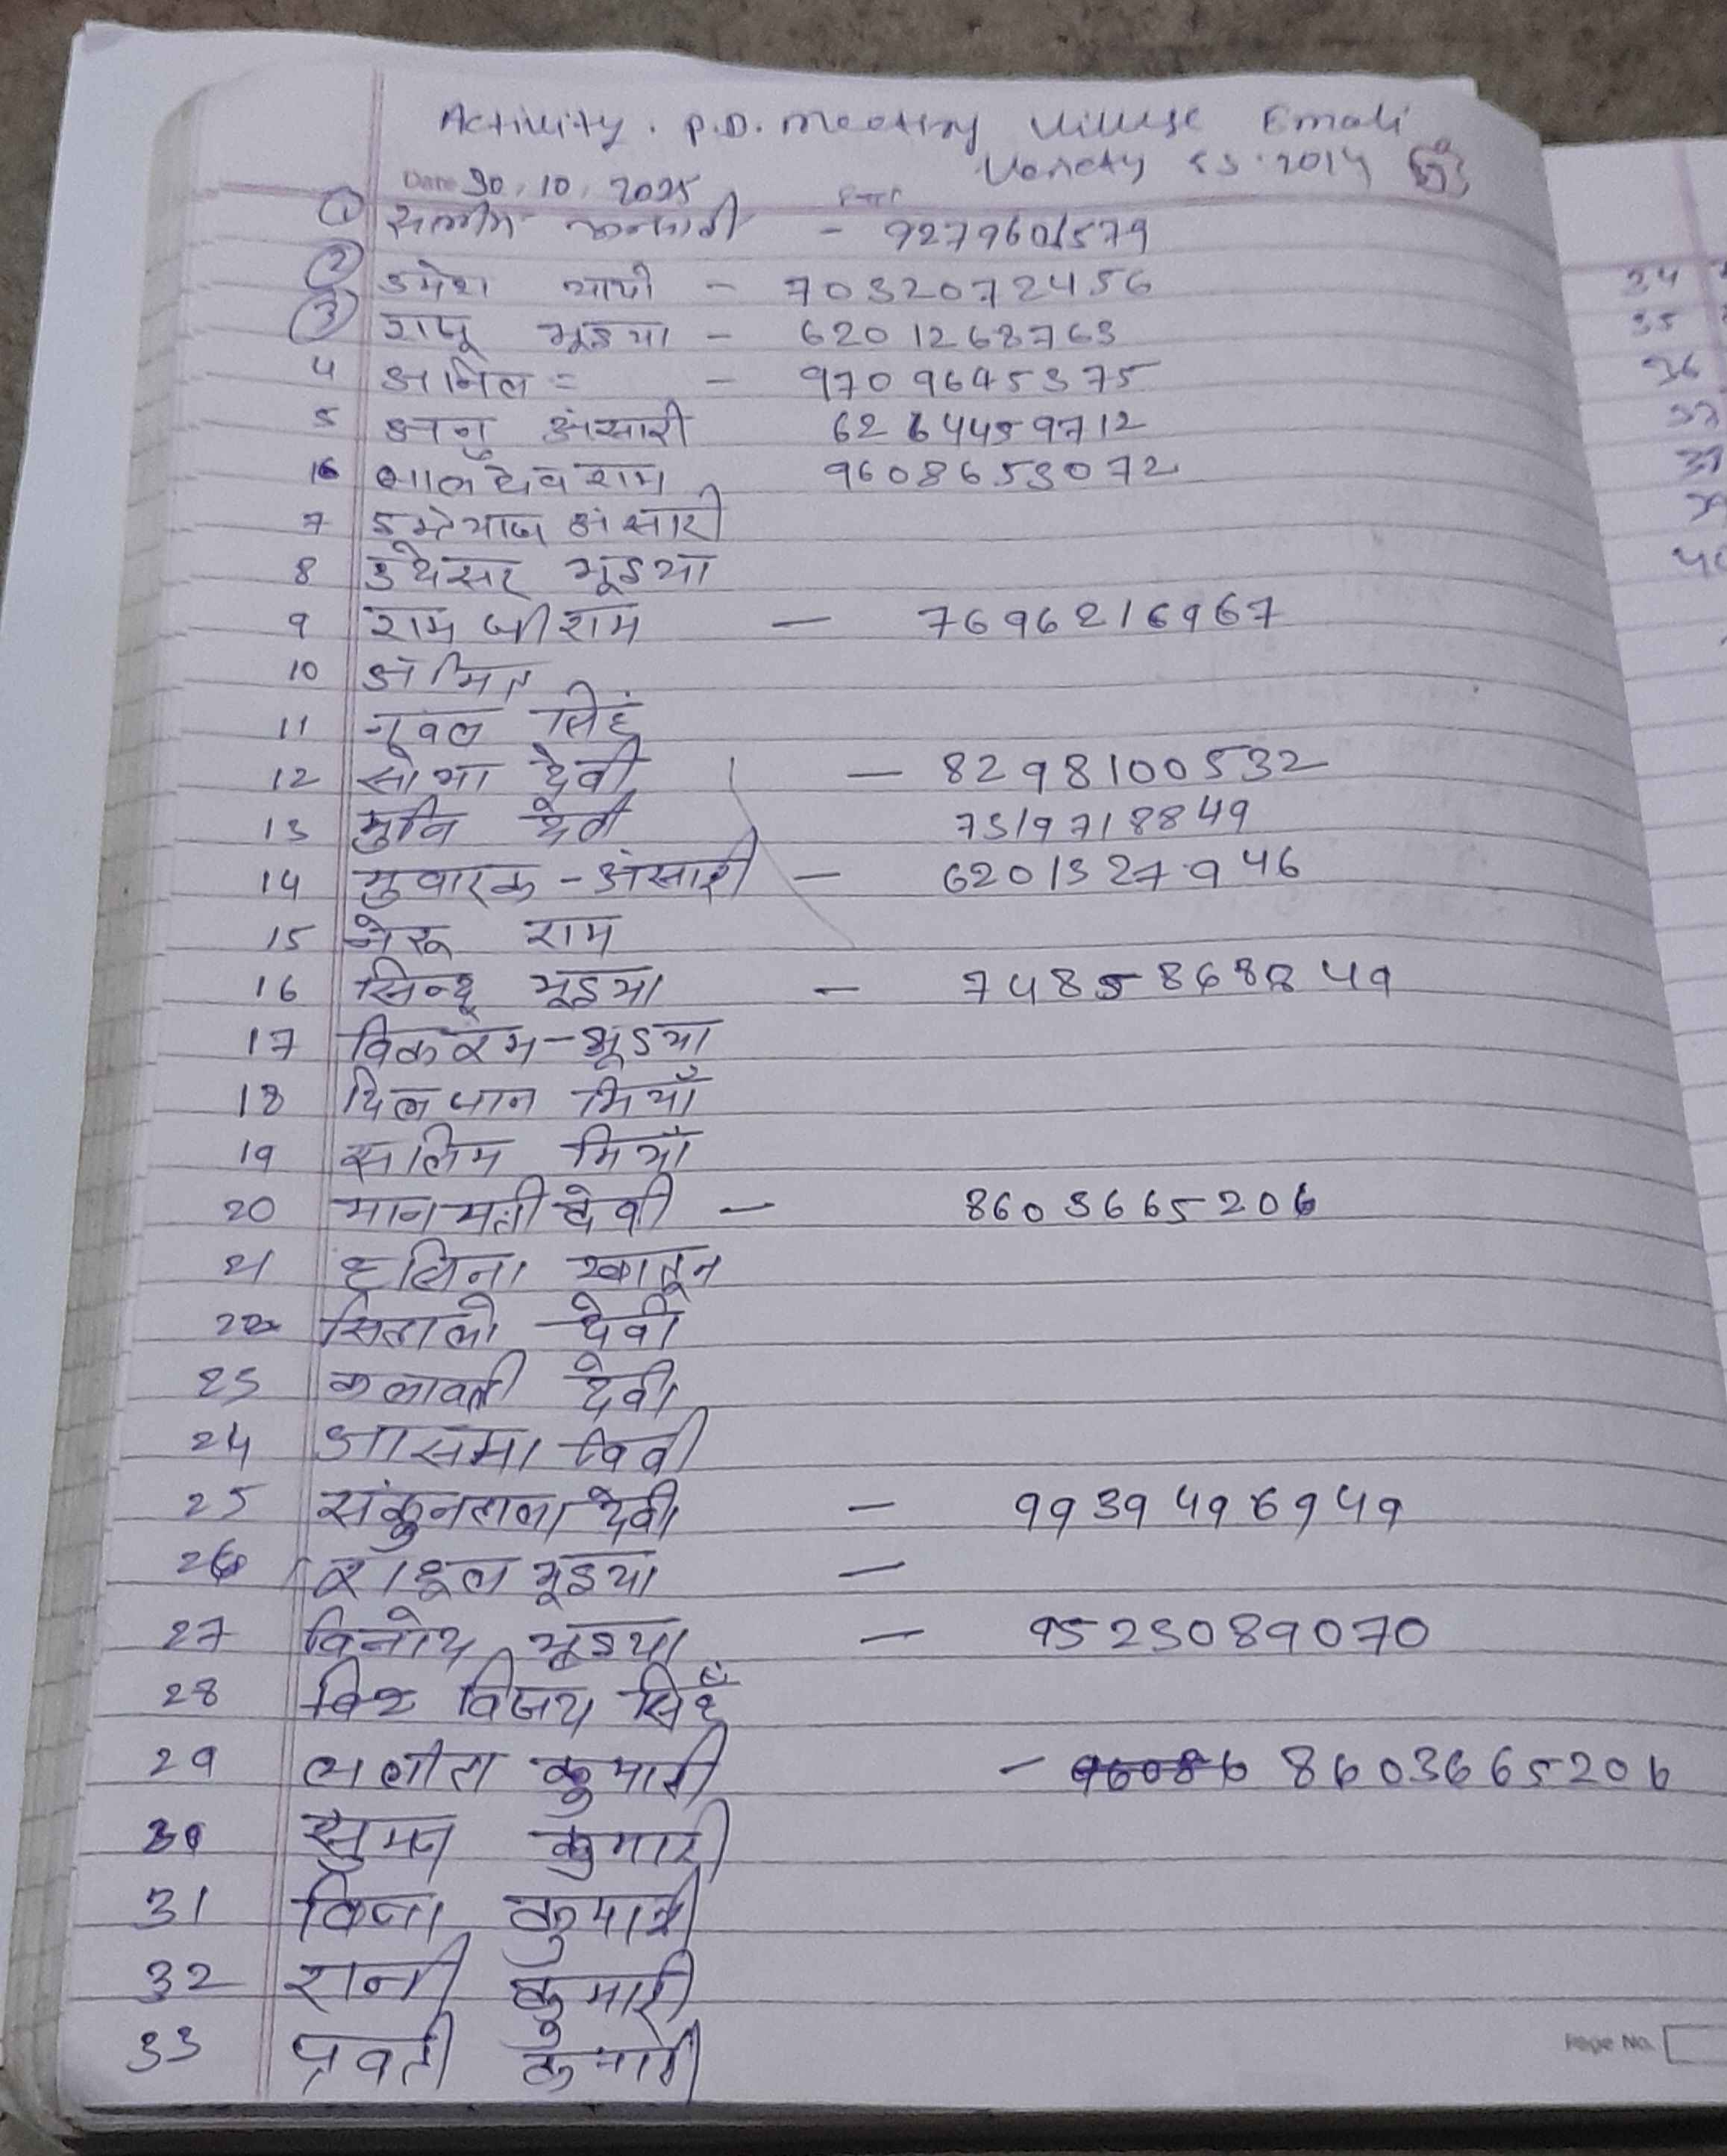 Activity. P.D. Meeting Village Emali
Variety SS.2014
Date 30.10.2025
1 सलीम अन्सारी - 9279601579
2 उमेश - 7032072456
3 राजू भूइया - 6201268763
4 अनिल = - 9709645375
5 अनु अंसारी 6264459712
6 बालदेव राम 9608653072
7 इम्तेयाज अंसारी
8 भूइया
9 राम जी राम - 7696216967
10 अमित
11 सिहं
12 सोभा देवी - 8298100532
13 मुनि देवी 7319718849
14 मुबारक - अंसारी - 6201327946
15 राम
16 भूइया - 7485868849
17 विकरम - भूइया
18 दिलजान मियाँ
19 सलिम मियाँ
20 मानमती देवी - 8603665206
21 हसिना खातून
22 देवी
23 कलावती देवी
24 आसमा बिवी
25 संकुनतला देवी - 9939496949
26 राहूल भूइया -
27 विनोद भूइया - 9523089070
28 विजय सिहं
29 ललीता कुमारी - 96086 8603665206
30 सुमन कुमारी
31 विना कुमारी
32 रानी कुमारी
33 कुमारी
34
35
36
37
Page No.